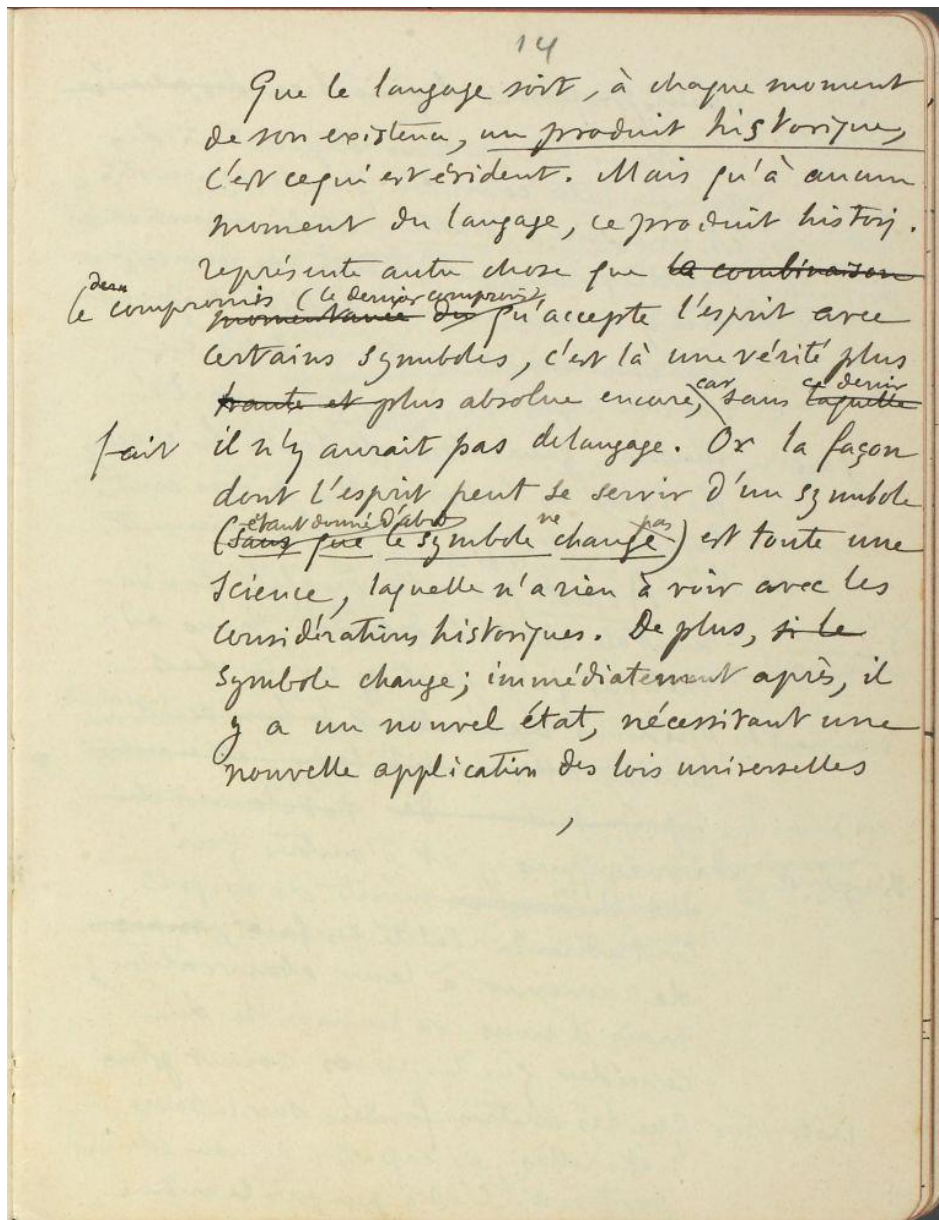 14
Que le langage soit, à chaque moment
de son existence, un produit historique,
c'est ce qui est évident. Mais qu'à aucun
moment du langage, ce produit histori.
représente autre chose que la combinaison
dern
le compromis (le dernier compromis)
momentanée du qu'accepte l'esprit avec
certains symboles, c'est là une vérité plus
car ce dernier
haute et plus absolue encore, sans laquelle
fait il n'y aurait pas de langage. Or la façon
dont l'esprit peut se servir d'un symbole
étant donné d'abord ne pas
(sans que le symbole change) est toute une
science, laquelle n'a rien à voir avec les
considérations historiques. De plus, si le
symbole change; immédiatement après, il
y a un nouvel état, nécessitant une
nouvelle application des lois universelles
,